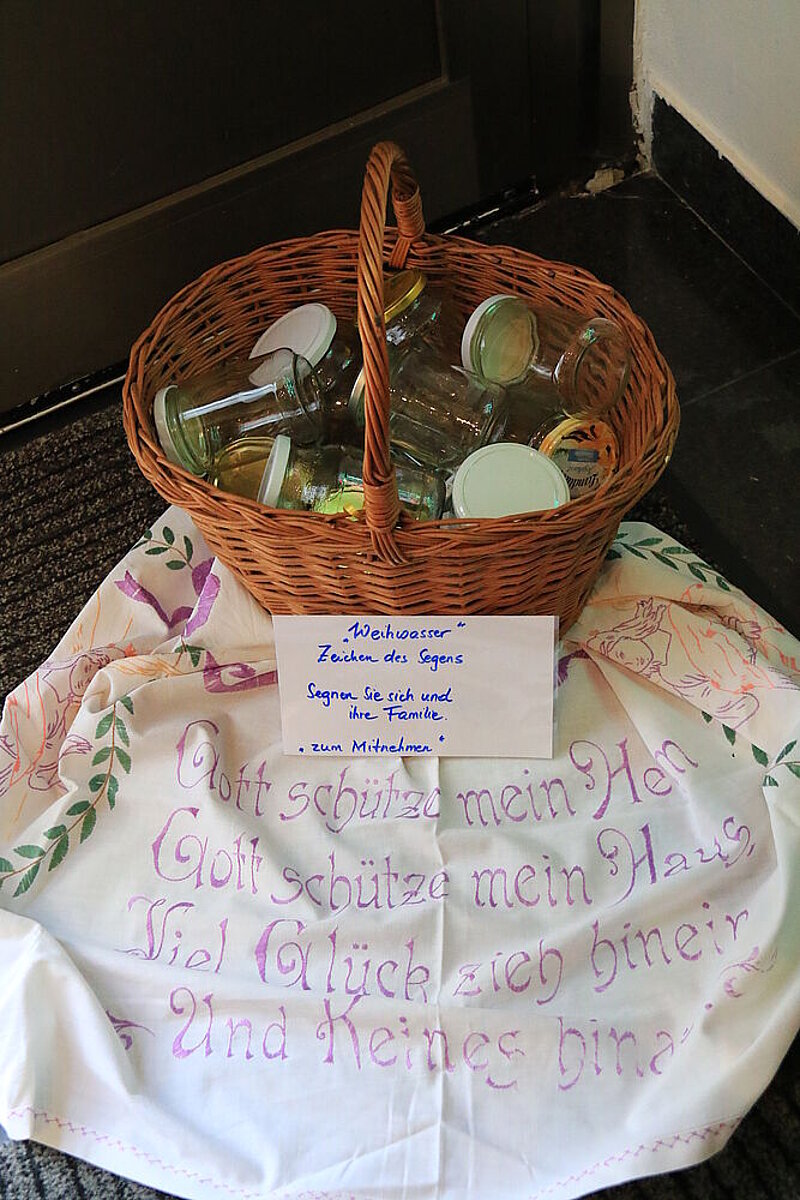 „Weihwasser“
Zeichen des Segens
Segnen Sie sich und
ihre Familie.
„zum Mitnehmen“
Gott schütze mein
Gott schütze mein Haus,
Viel Glück zieh hinein
Und Keines